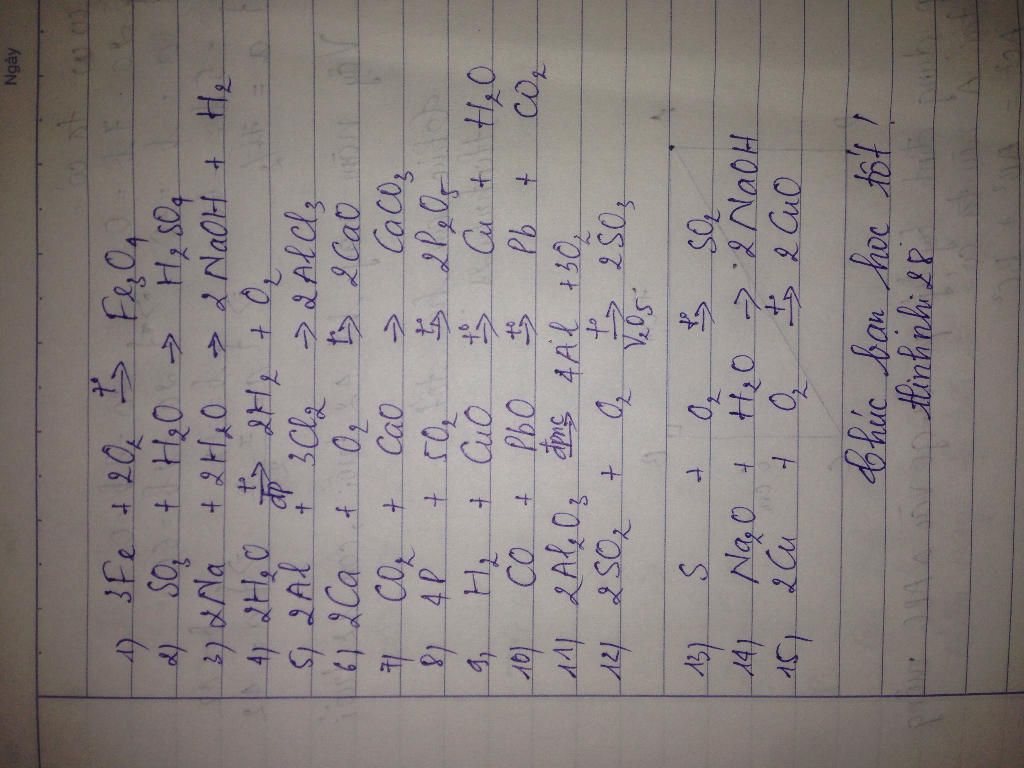 Ngày
1) 3Fe + 2O₂ t°→ Fe₃O₄
2) SO₃ + H₂O → H₂SO₄
3) 2Na + 2H₂O → 2NaOH + H₂
4) 2H₂O t°→ đp 2H₂ + O₂
5) 2Al + 3Cl₂ → 2AlCl₃
6) 2Ca + O₂ t°→ 2CaO
7) CO₂ + CaO → CaCO₃
8) 4P + 5O₂ t°→ 2P₂O₅
9) H₂ + CuO t°→ Cu + H₂O
10) CO + PbO t°→ Pb + CO₂
11) 2Al₂O₃ đpnc→ 4Al + 3O₂
12) 2SO₂ + O₂ t°→ V₂O₅ 2SO₃
13) S + O₂ t°→ SO₂
14) Na₂O + H₂O → 2NaOH
15) 2Cu + O₂ t°→ 2CuO
Chúc bạn học tốt!
thinhnhi28